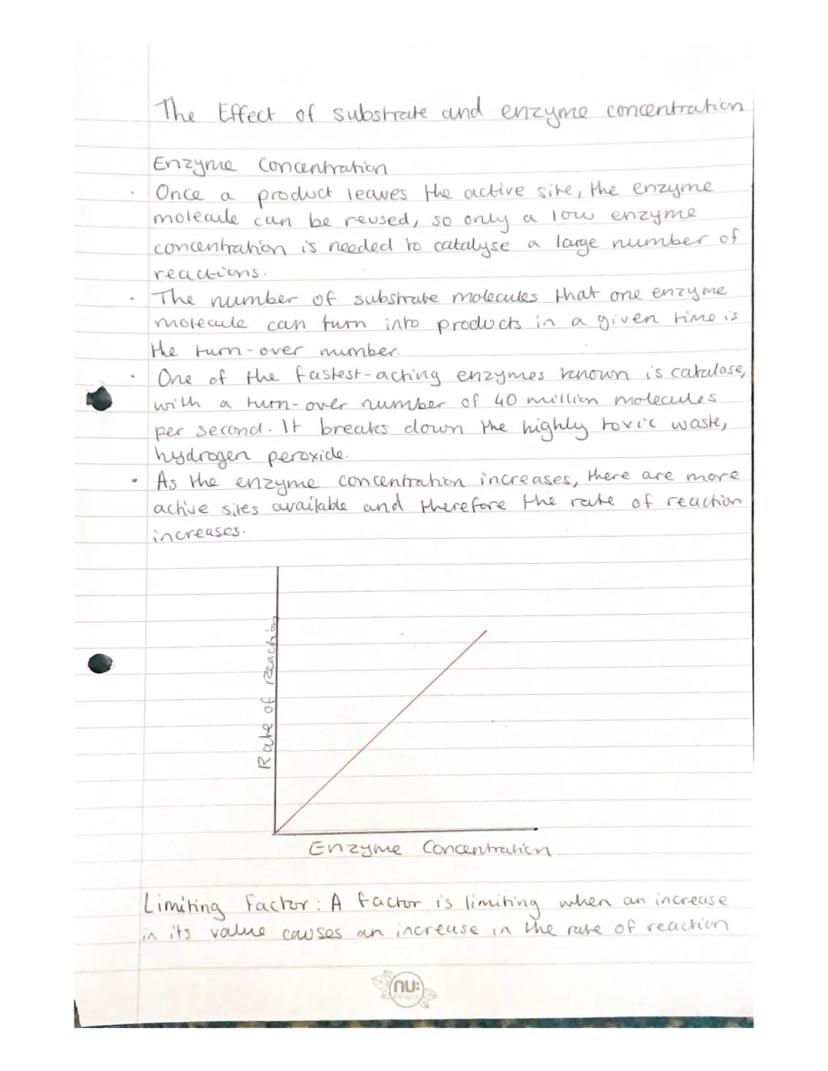 The Effect of substrate and enzyme concentration
Enzyme Concentration
· Once a product leaves the active site, the enzyme
molecule can be reused, so only a low enzyme
concentration is needed to catalyse a large number of
reactions.
· The number of substrate molecules that one enzyme
molecule can turn into products in a given time is
the turn-over number.
· One of the fastest-acting enzymes known is catalase,
with a turn-over number of 40 million molecules
per second. It breaks down the highly toxic waste,
hydrogen peroxide.
· As the enzyme concentration increases, there are more
active sites available and therefore the rate of reaction
increases.
Rate of reaction
Enzyme Concentration
Limiting Factor: A factor is limiting when an increase
in its value causes an increase in the rate of reaction
nu: